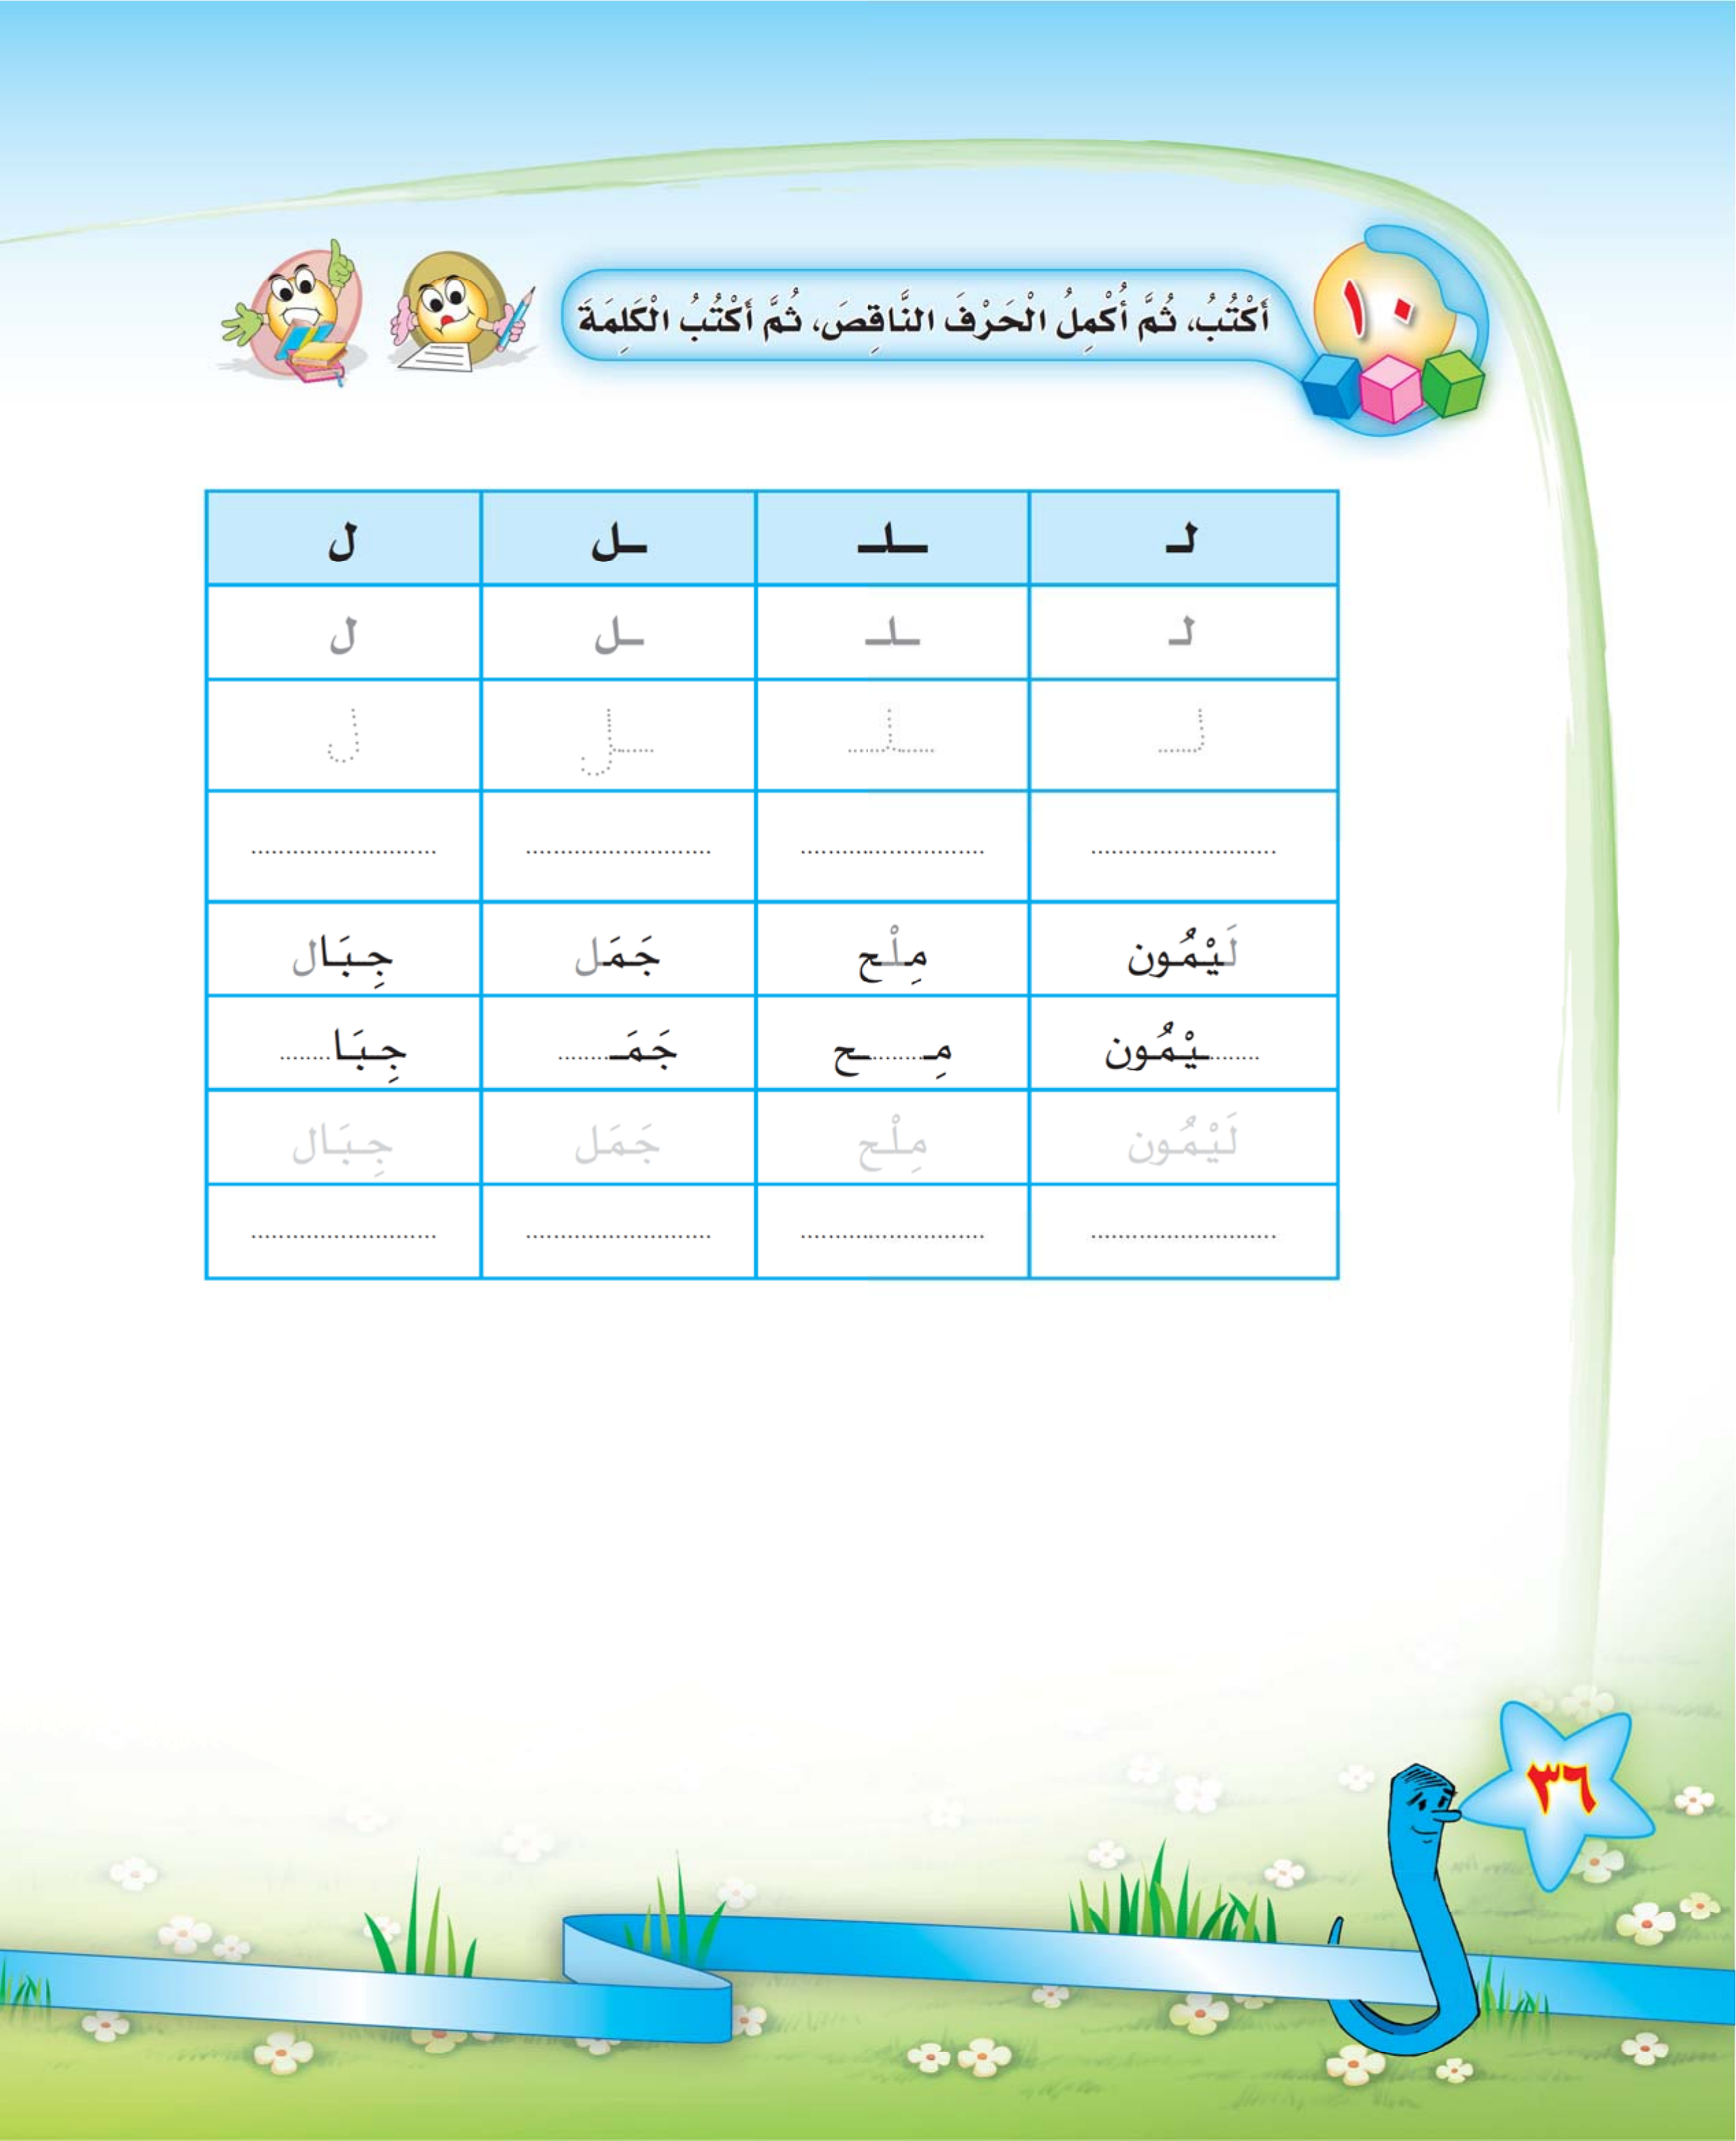 ١٠
أَكْتُبُ، ثُمَّ أُكْمِلُ الْحَرْفَ النَّاقِصَ، ثُمَّ أَكْتُبُ الْكَلِمَةَ
لـ ـلـ ـل ل
لـ ـلـ ـل ل
لـ ـلـ ـل ل
.......................... .......................... .......................... ..........................
لَيْمُون مِلْح جَمَل جِبَال
........ـيْمُون مِـ.........ـح جَمَـ........ جِبَا........
لَيْمُون مِلْح جَمَل جِبَال
.......................... .......................... .......................... ..........................
٣٦